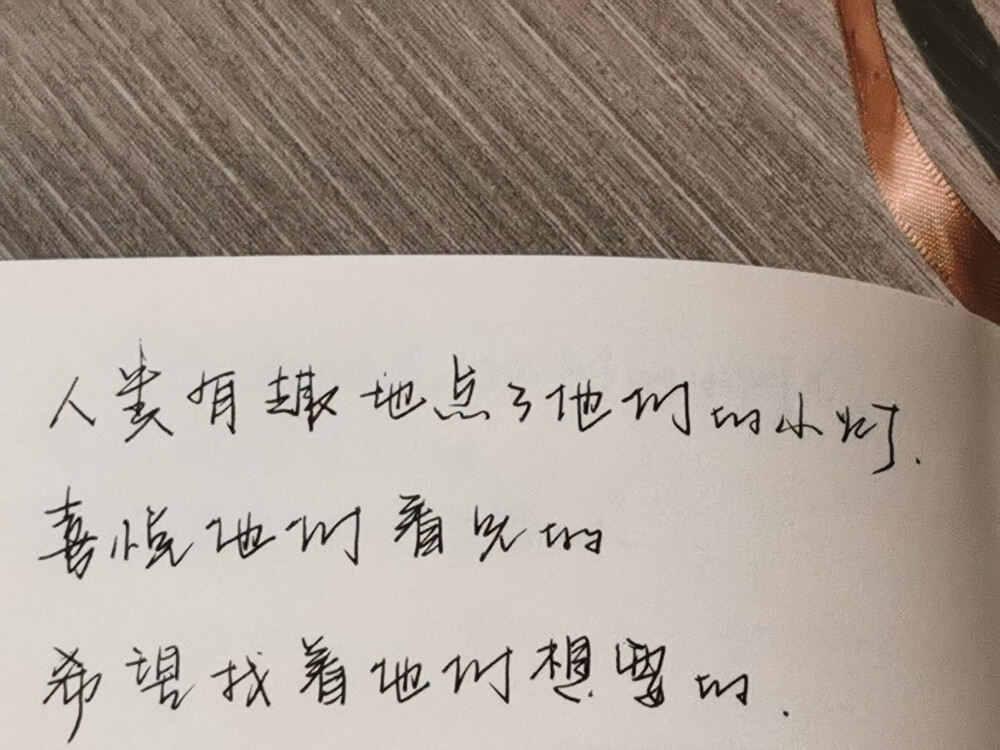 人类有趣地点了他们的小灯.
喜悦他们看见的
希望找着他们想要的.